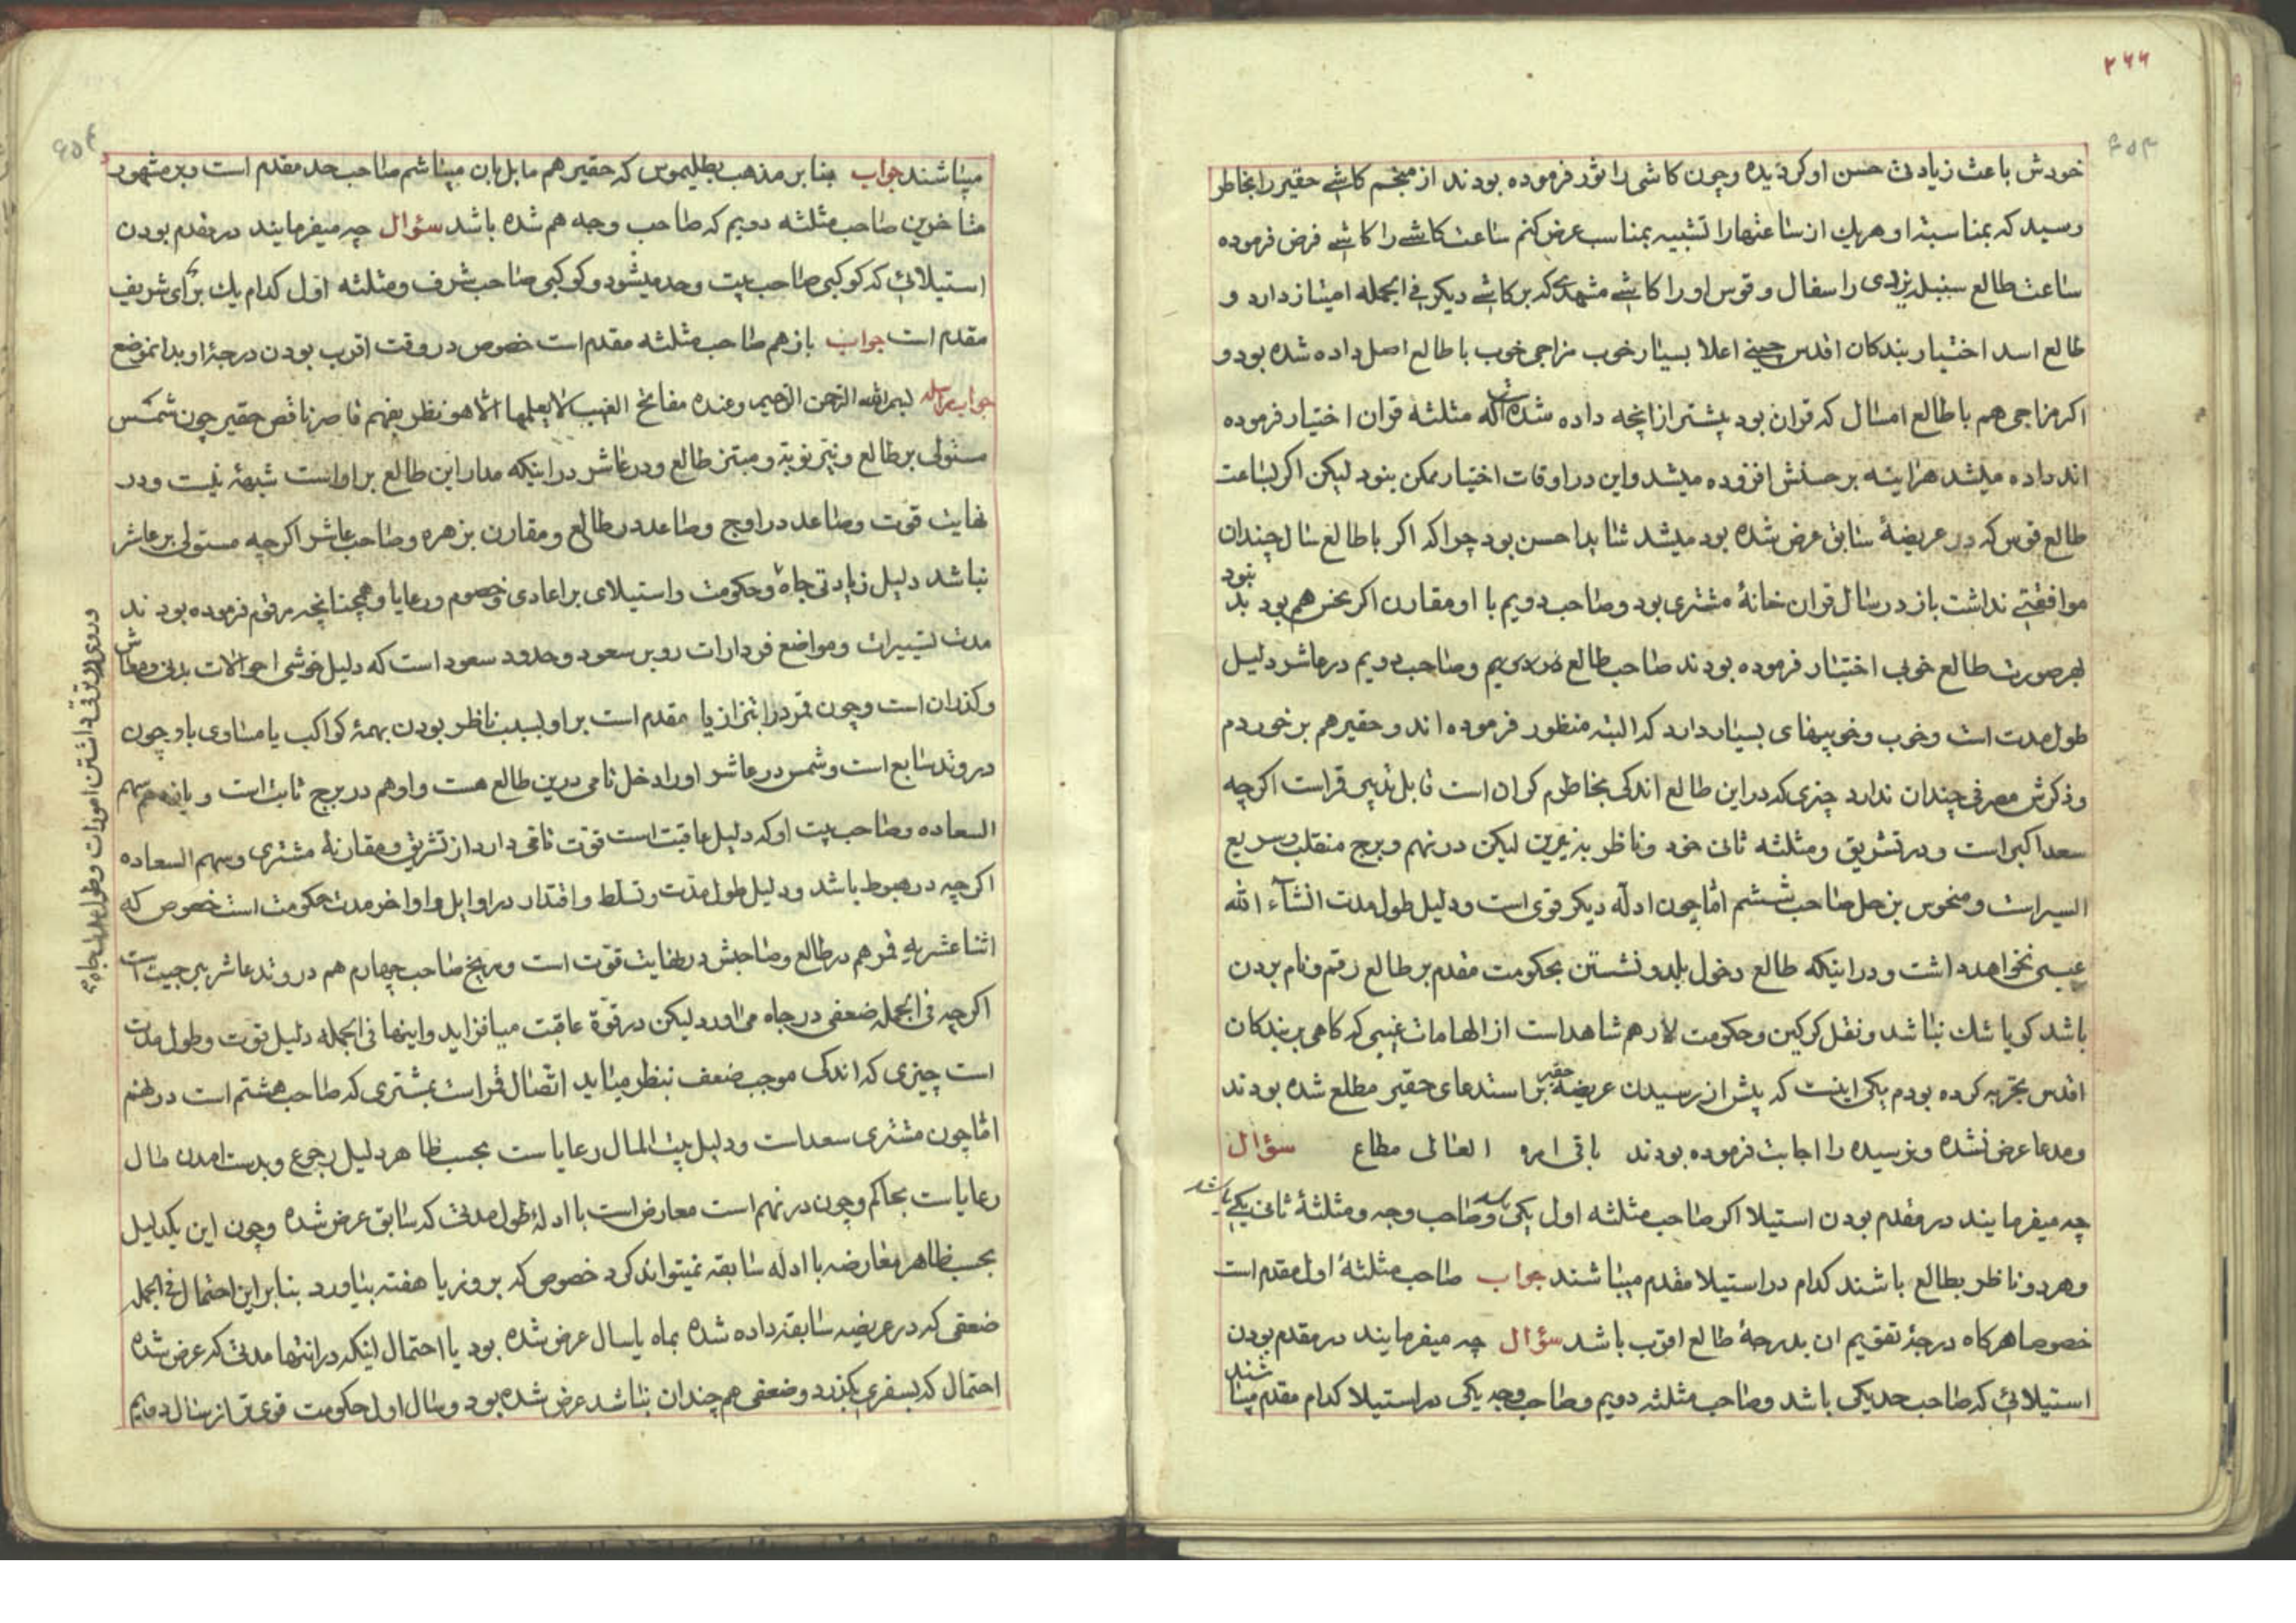 ۲۶۶
خودش باعث زیادتی حسن او کردیده وچون کاشی را نور فرموده بودند از منجم کاشے حقیر را بخاطر
رسید که بمناسبة او هریك از ساعتها را تشبیه بمناسب عرض کنم ساعت کاشے را کاشے فرض فرموده
ساعت طالع سنبله یزدی را سفال و قوس او را کاشے مشهدی که بر کاشے دیکر فے الجمله امتیاز دارد و
طالع اسد اختیار بندکان اقدس چینے اعلا بسیار خوب مزاجی خوب با طالع اصل داده شده بود و
اکر مزاجی هم با طالع امسال که قوان بود پیشتر از انچه داده شده مثلثه قوان اختیار فرموده
اند داده میشد هراینه بر حسنش افزوده میشد و این در اوقات اختیار ممکن بنود لیکن اکر بساعت
طالع قوس که در عریضهٔ سابق عرض شده بود میشد شاید احسن بود چرا که اکر با طالع سال چندان
موافقتے نداشت باز در سال قران خانهٔ مشتری بود وصاحب دویم با او مقارن اکر نحس هم بود بد نبود
بهر صورت طالع خوبی اختیار فرموده بودند صاحب طالع وصاحب دویم در عاشر دلیل
طول مدت است وخوب وخوبیهای بسیار دارد که البته منظور فرموده اند و حقیر هم بر خوردم
وذکرش مصرفی چندان ندارد چیزی که در این طالع اندکی بخاطرم کران است قابل تدبیر قمر است اکرچه
سعد اکبر است و در تشریق ومثلثه ثانی خود وناظر به نیرین لیکن در نهم و برج منقلب وسریع
السیر است ومنحوس بزحل صاحب ششم اما چون ادله دیکر قوی است ودلیل طول مدت انشآء الله
عیبی نخواهد داشت و در اینکه طالع دخول بلد و نشستن بحکومت مقدم بر طالع رقم ونام بردن
باشد کویا شك نباشد ونقل کرکین وحکومت لار هم شاهد است از الهامات غیبی که کاهی بر بندکان
اقدس تجربه کرده بودم یکی اینست که پیش از رسیدن عریضهٔ حقیر بر استدعای حقیر مطلع شده بودند
ومدعا عرض نشده ونرسیده را اجابت فرموده بودند باقی امره العالی مطاع سؤال
چه میفرمایند در مقدم بودن استیلا اکر صاحب مثلثه اول یکی باشد وصاحب وجه ومثلثهٔ ثانی یکی باشد
وهر دو ناظر بطالع باشند کدام در استیلا مقدم میباشند جواب صاحب مثلثهٔ اول مقدم است
خصوصا هرکاه درجهٔ تقویم ان بدرجهٔ طالع اقرب باشد سؤال چه میفرمایند در مقدم بودن
استیلائی که صاحب حد یکی باشد وصاحب مثلثه دویم وصاحب وجه یکی در استیلا کدام مقدم میباشند
میباشند جواب بنا بر مذهب بطلیموس که حقیر هم مایل بان میباشم صاحب حد مقدم است و بر مشهور
متاخرین صاحب مثلثه دویم که صاحب وجه هم شده باشد سؤال چه میفرمایند در مقدم بودن
استیلائی که کوکبی صاحب بیت وحد میشود و کوکبی صاحب شرف ومثلثه اول کدام یك برای شریف
مقدم است جواب باز هم صاحب مثلثه مقدم است خصوص در وقت اقرب بودن درجهٔ او بدانموضع
جواب مراسله بسم الله الرحمن الرحیم وعنده مفاتح الغیب لا یعلمها الا هو نظر بفهم قاصر ناقص حقیر چون شمس
مستولی بر طالع و نیر نوبة و مبتز طالع ودر عاشر در اینکه مدار این طالع بر اواست شبههٔ نیست ودر
نهایت قوت وصاعد در اوج وصاعد در طالع و مقارن بزهره وصاحب عاشر اکرچه مستولی بر عاشر
نباشد دلیل زیادتی جاه وحکومت واستیلای بر اعادی وخصوم ورعایا وهمچنانچه مرقوم فرموده بودند
مدت تسییرات ومواضع فردارات رو بر سعود وحدود سعود است که دلیل خوشی احوالات بدنی ومعاش
وکذران است وچون قمر در مقدم است بر او بسبب ناظر بودن بهمهٔ کواکب یا مساوی با و چون
در وتد سابع است وشمس در عاشر اورا دخل تامی درین طالع هست واو هم در برج ثابت است و سهم
السعاده وصاحب بیت او که دلیل عاقبت است قوت تامی دارد از تشریق ومقارنهٔ مشتری وسهم السعاده
اکرچه در هبوط باشد ودلیل طول مدت وتسلط واقتدار در اوایل واواخر مدت حکومت است خصوص که
اثنا عشریه قمر هم در طالع وصاحبش در نهایت قوت است ومریخ صاحب چهارم هم در وتد عاشر
اکرچه فی الجمله ضعفی در جاه می اورد لیکن در قوة عاقبت میافزاید واینها فی الجمله دلیل قوت وطول مدت
است چیزی که اندکی موجب ضعف بنظر میاید اتصال قمر است بمشتری که صاحب هشتم است در نهم
اما چون مشتری سعد است ودلیل بیت المال رعایاست بحسب ظاهر دلیل رجوع وبدست امدن مال
رعایاست بحاکم وچون در نهم است معارض است با ادلهٔ طول مدتی که سابق عرض شده وچون این یکدلیل
بحسب ظاهر معارضه با ادله سابقه نمیتواند کرد خصوص که بروز یا هفته بیاورد بنا بر این احتمال فے الجمله
ضعفی که در عریضه سابقه داده شده بماه یا سال عرض شده بود یا احتمال اینکه در انتها مدتی که عرض شده
احتمال که بسفری بکذرد وضعفی هم چندان نباشد عرض شده بود وسال اول حکومت قوی تر از سال دویم